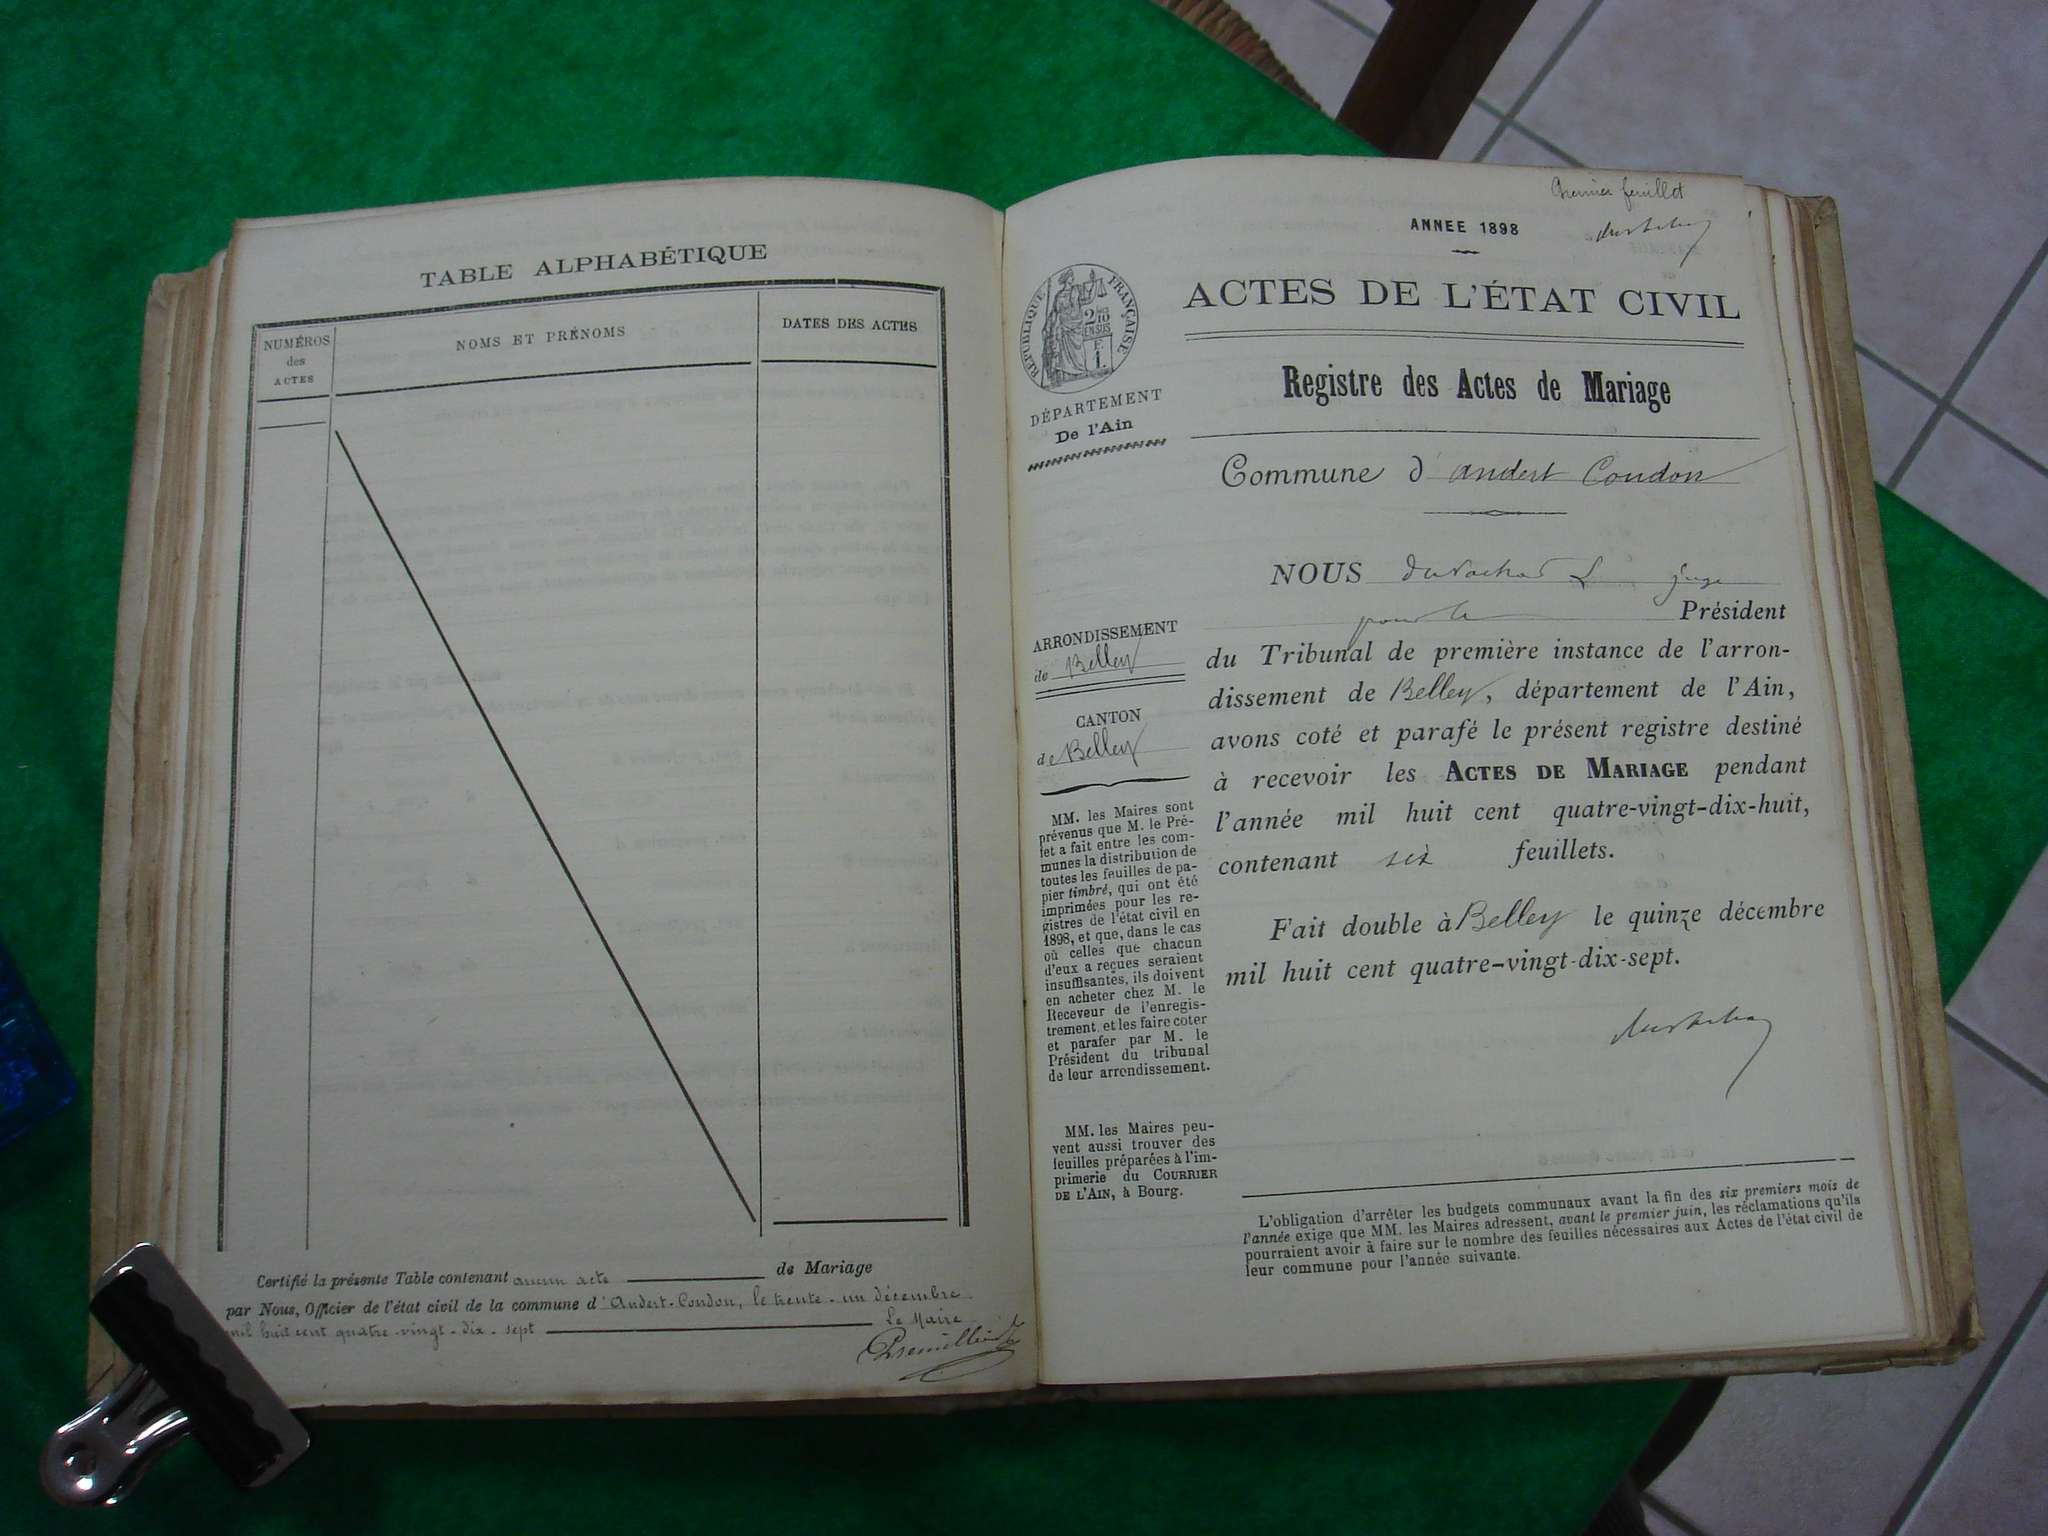 TABLE ALPHABÉTIQUE
NUMÉROS
des
ACTES
NOMS ET PRÉNOMS
DATES DES ACTES
Certifié la présente Table contenant aucun acte de Mariage
par Nous, Officier de l'état civil de la commune d'Andert-Condon, le trente-un décembre
mil huit cent quatre-vingt-dix-sept
Le Maire
Premier feuillet
ANNEE 1898
RÉPUBLIQUE FRANÇAISE
2/10
EN SUS
ACTES DE L'ÉTAT CIVIL
DÉPARTEMENT
De l'Ain
Registre des Actes de Mariage
Commune d'Andert Condon
ARRONDISSEMENT
de Belley
CANTON
de Belley
MM. les Maires sont
prévenus que M. le Pré-
fet a fait entre les com-
munes la distribution de
toutes les feuilles de pa-
pier timbré, qui ont été
imprimées pour les re-
gistres de l'état civil en
1898, et que, dans le cas
où celles que chacun
d'eux a reçues seraient
insuffisantes, ils doivent
en acheter chez M. le
Receveur de l'enregis-
trement, et les faire coter
et parafer par M. le
Président du tribunal
de leur arrondissement.
MM. les Maires peu-
vent aussi trouver des
feuilles préparées à l'im-
primerie du COURRIER
DE L'AIN, à Bourg.
NOUS juge
pour le Président
du Tribunal de première instance de l'arron-
dissement de Belley, département de l'Ain,
avons coté et parafé le présent registre destiné
à recevoir les ACTES DE MARIAGE pendant
l'année mil huit cent quatre-vingt-dix-huit,
contenant six feuillets.
Fait double à Belley le quinze décembre
mil huit cent quatre-vingt-dix-sept.
L'obligation d'arrêter les budgets communaux avant la fin des six premiers mois de
l'année exige que MM. les Maires adressent, avant le premier juin, les réclamations qu'ils
pourraient avoir à faire sur le nombre des feuilles nécessaires aux Actes de l'état civil de
leur commune pour l'année suivante.